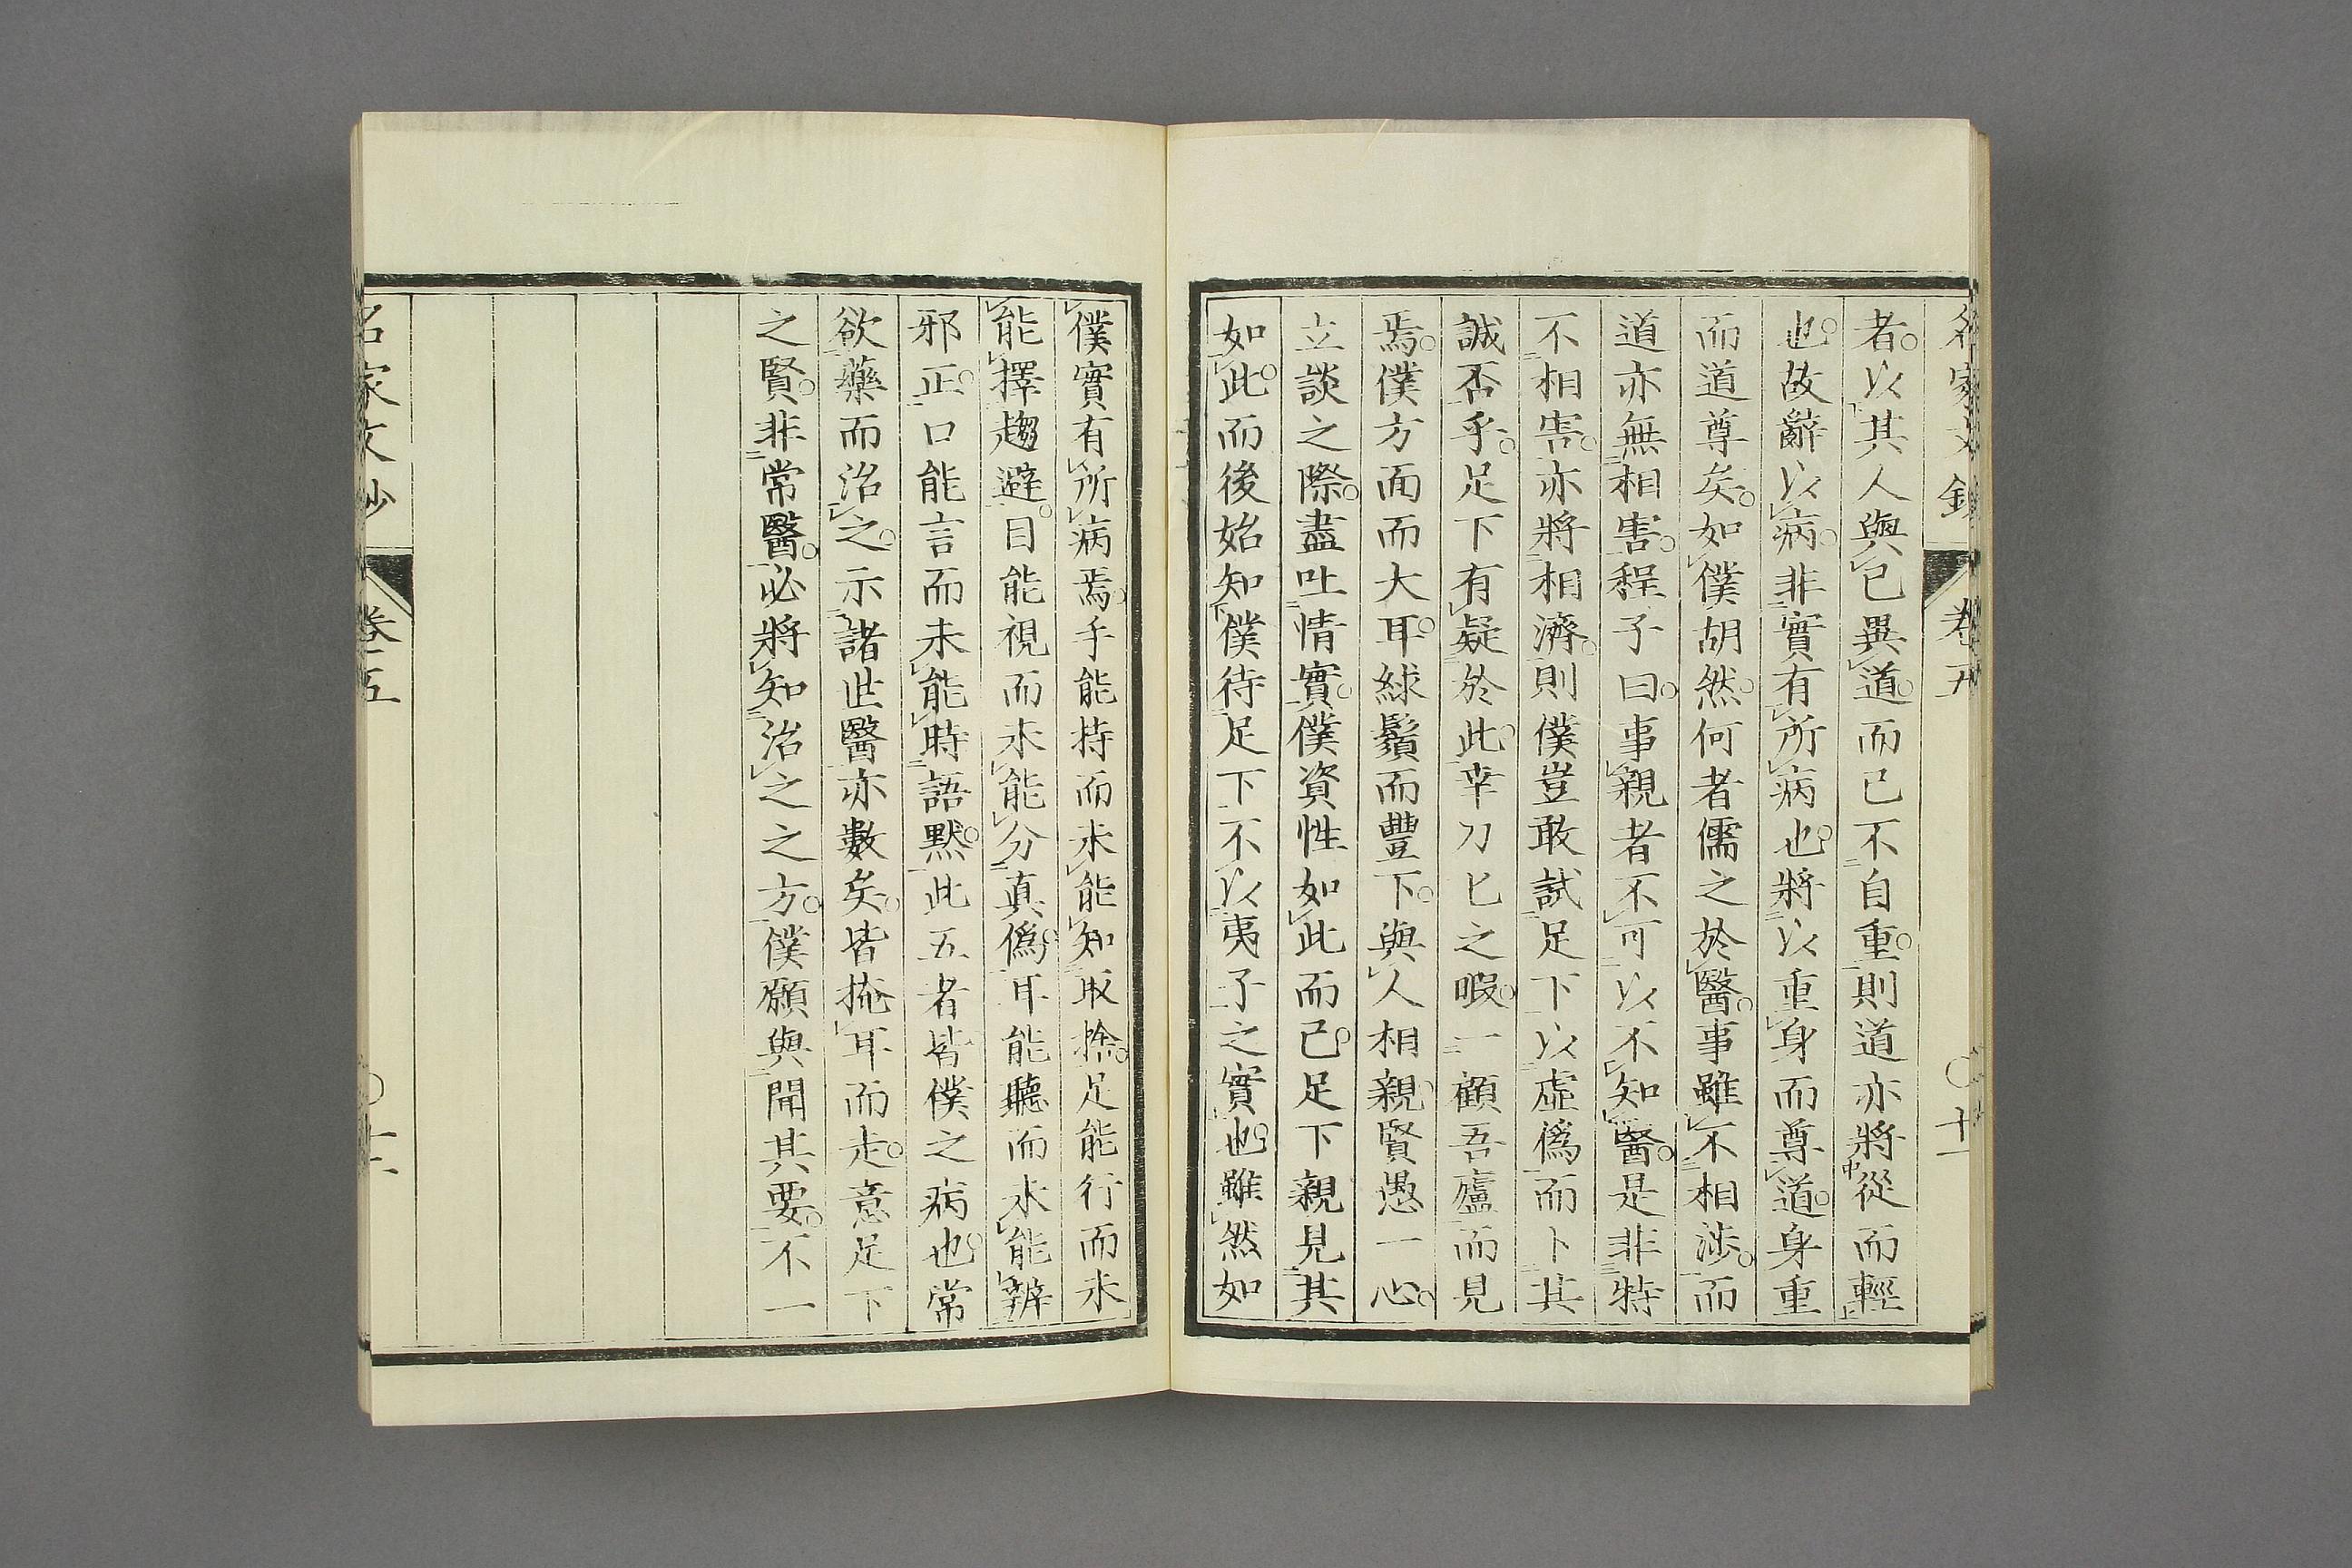 名家文鈔 卷五 〇十一
者以其人與已異道而已不自重則道亦將從而輕
也故辭以病非實有所病也將以重身而尊道身重
而道尊矣如僕胡然何者儒之於醫事雖不相涉而
道亦無相害程子曰事親者不可以不知醫是非特
不相害亦將相濟則僕豈敢試足下以虛僞而卜其
誠否乎足下有疑於此幸刀匕之暇一顧吾廬而見
焉僕方面而大耳綠鬚而豐下與人相親賢愚一心
立談之際盡吐情實僕資性如此而已足下親見其
如此而後始知僕待足下不以夷子之實也雖然如
僕實有所病焉手能持而未能知取捨足能行而未
能擇趨避目能視而未能分真僞耳能聽而未能辨
邪正口能言而未能時語默此五者皆僕之病也常
欲藥而治之示諸世醫亦數矣皆掩耳而走意足下
之賢非常醫必將知治之之方僕願與聞其要不一
名家文鈔 卷五